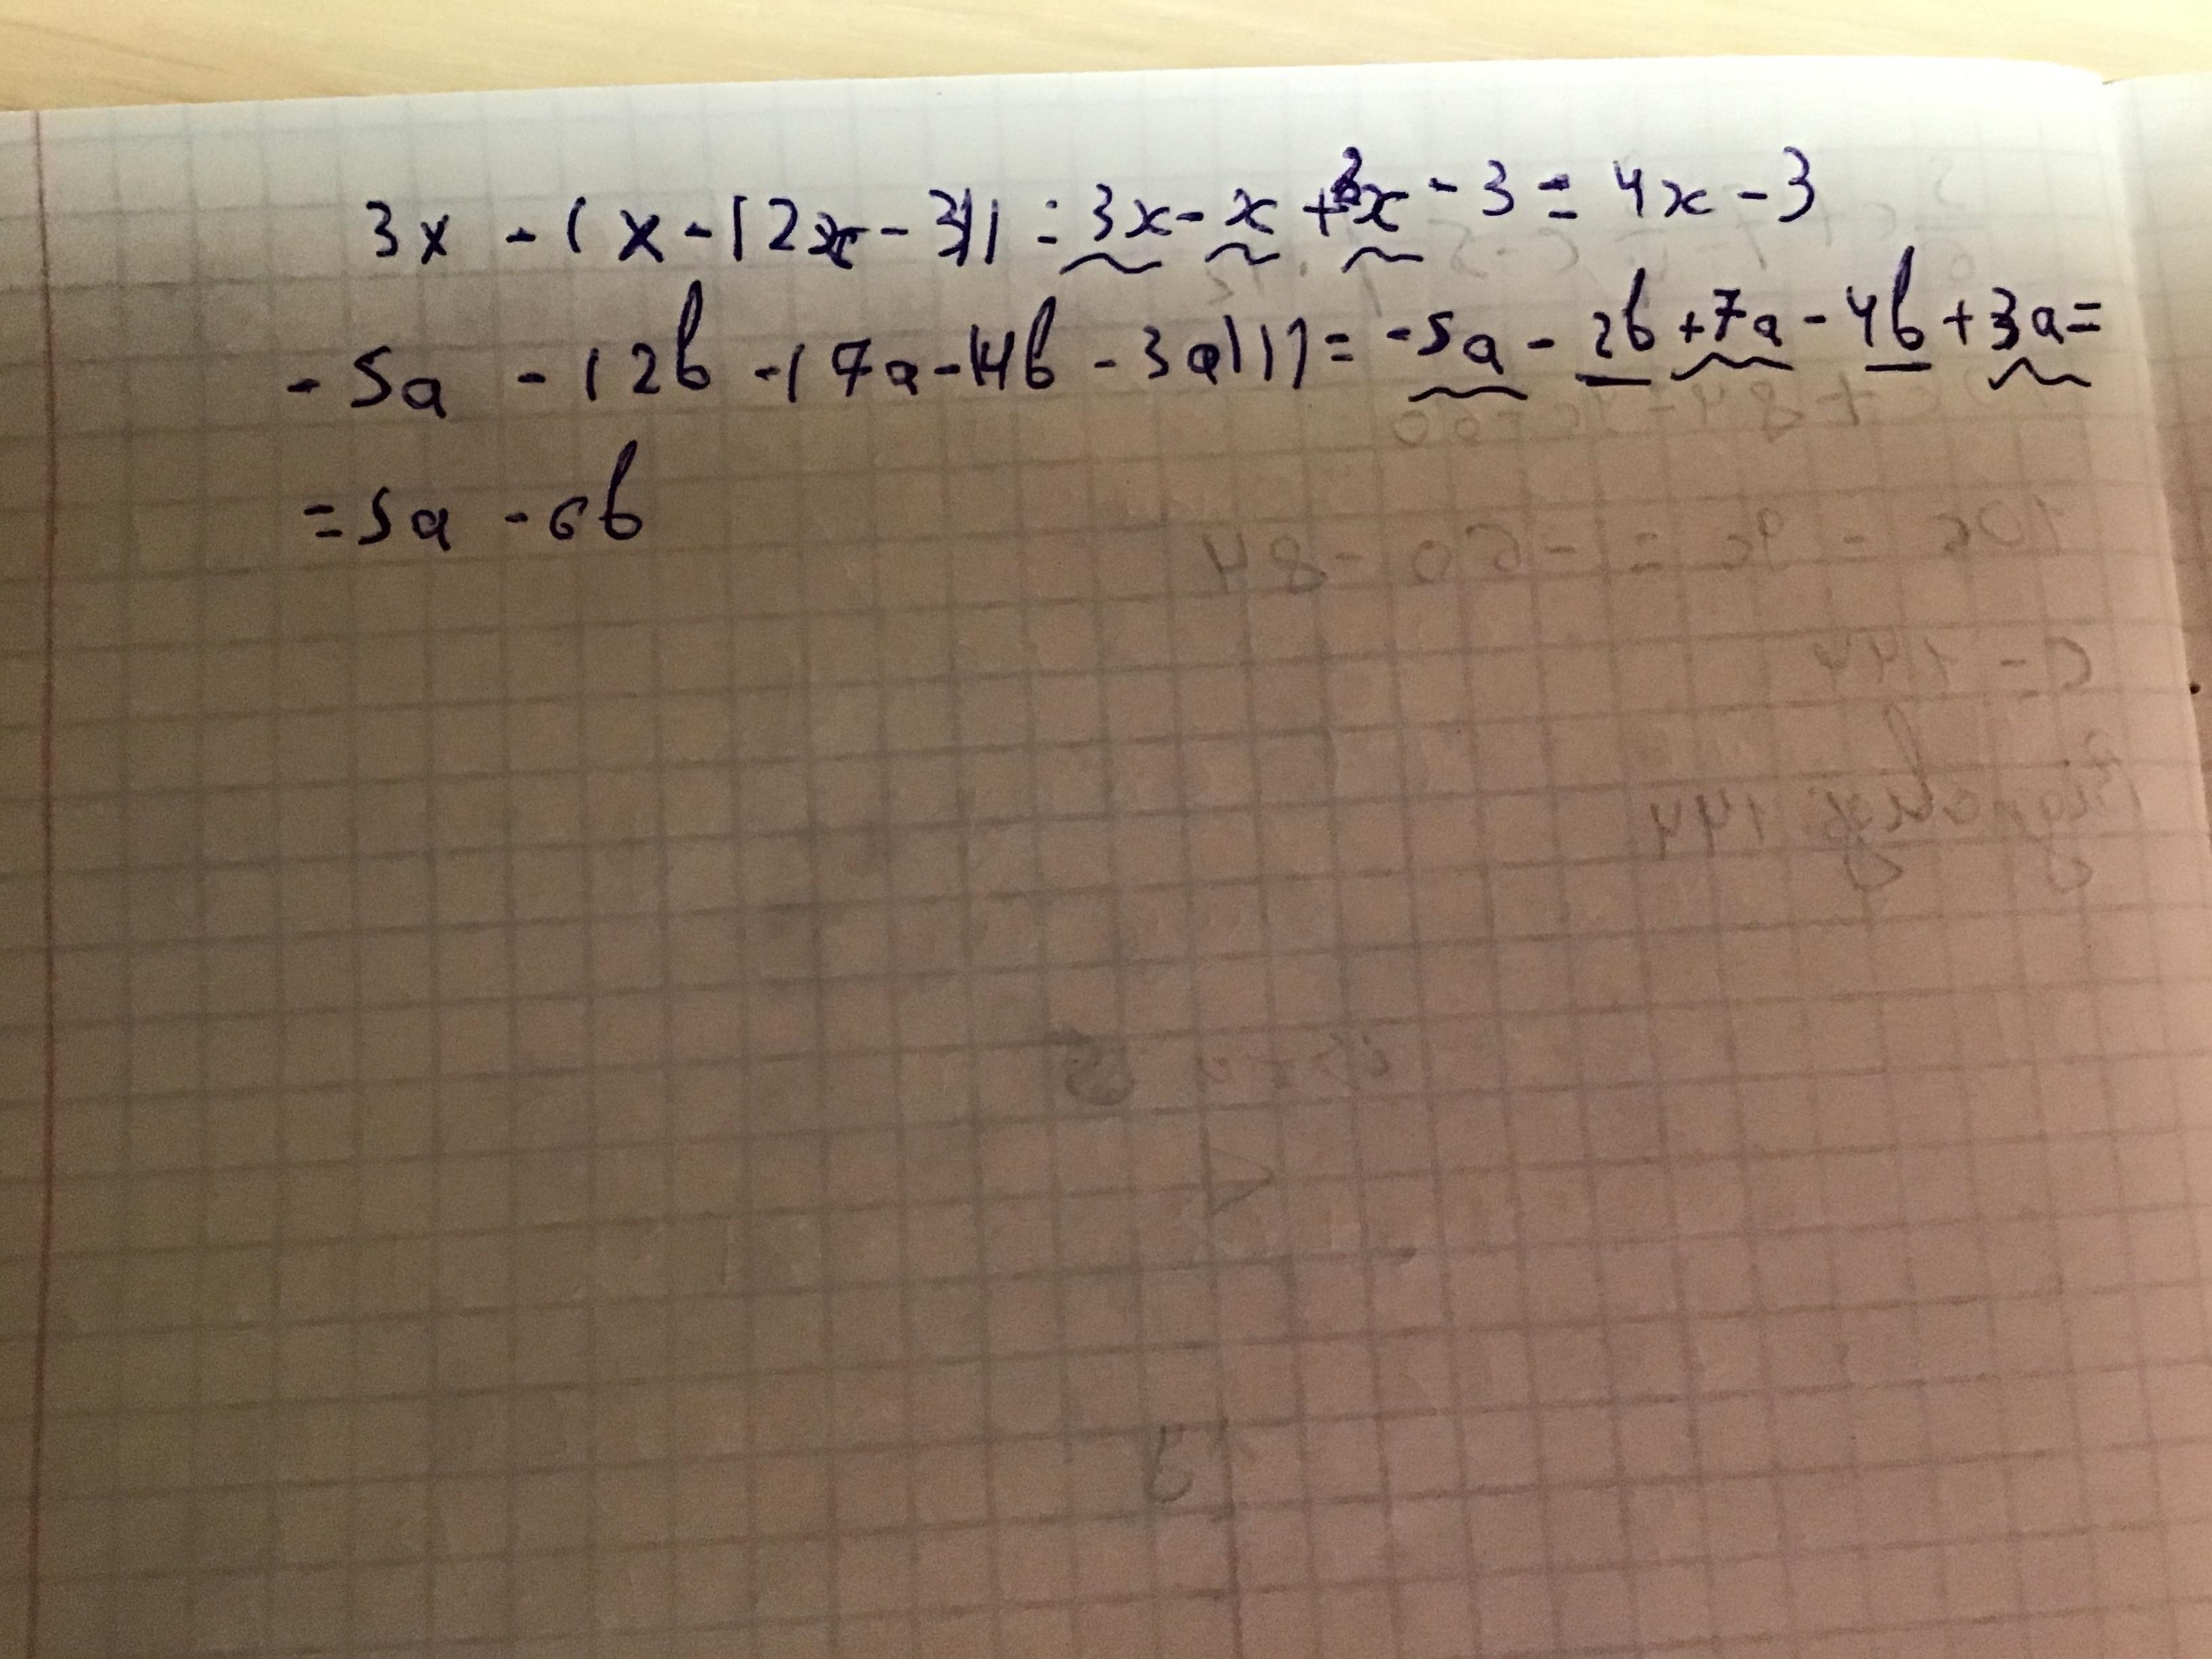 3x - (x - (2x - 3)) = 3x - x + 2x - 3 = 4x - 3
- 5a - (2b - (7a - (4b - 3a))) = -5a - 2b + 7a - 4b + 3a =
= 5a - 6b